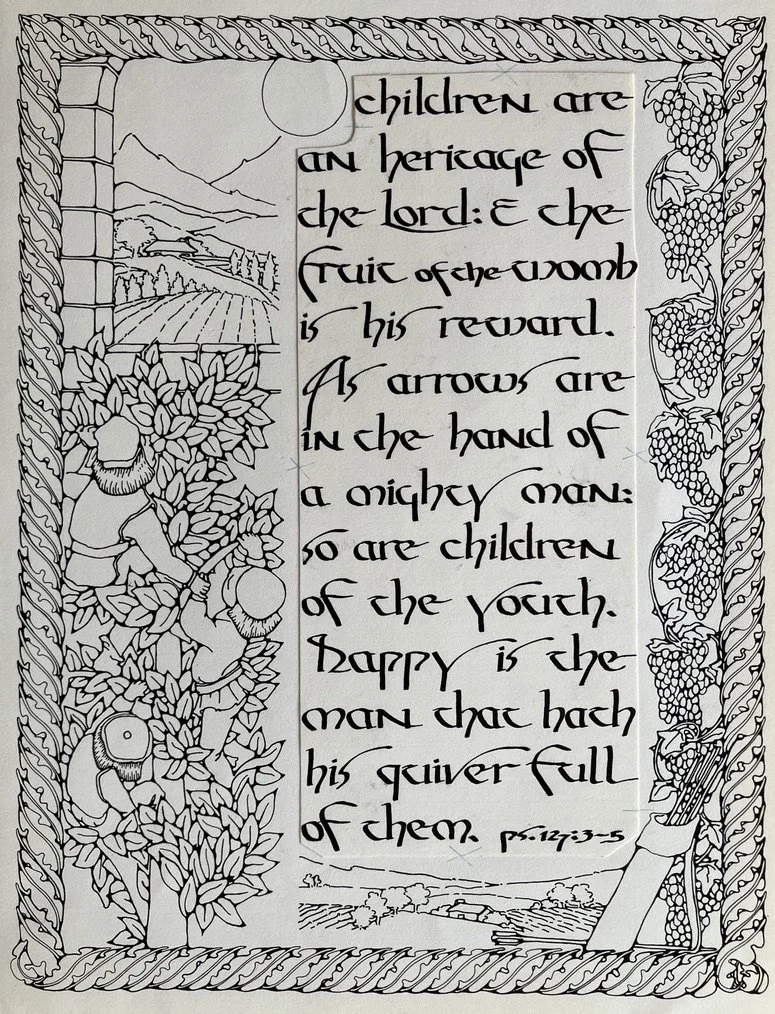 children are
an heritage of
the Lord: & the
fruit of the womb
is his reward.
As arrows are
in the hand of
a mighty man:
so are children
of the youth.
Happy is the
man that hath
his quiver full
of them. ps. 127:3-5